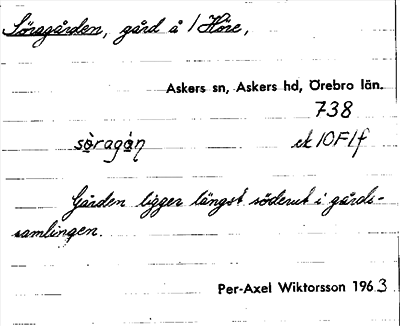 Söragården, gård å / Höre,
Askers sn, Askers hd, Örebro län.
738
sö̀ragáṇ ek 10F1f
Gården ligger längst söderut i gårds-
samlingen.
Per-Axel Wiktorsson 1963